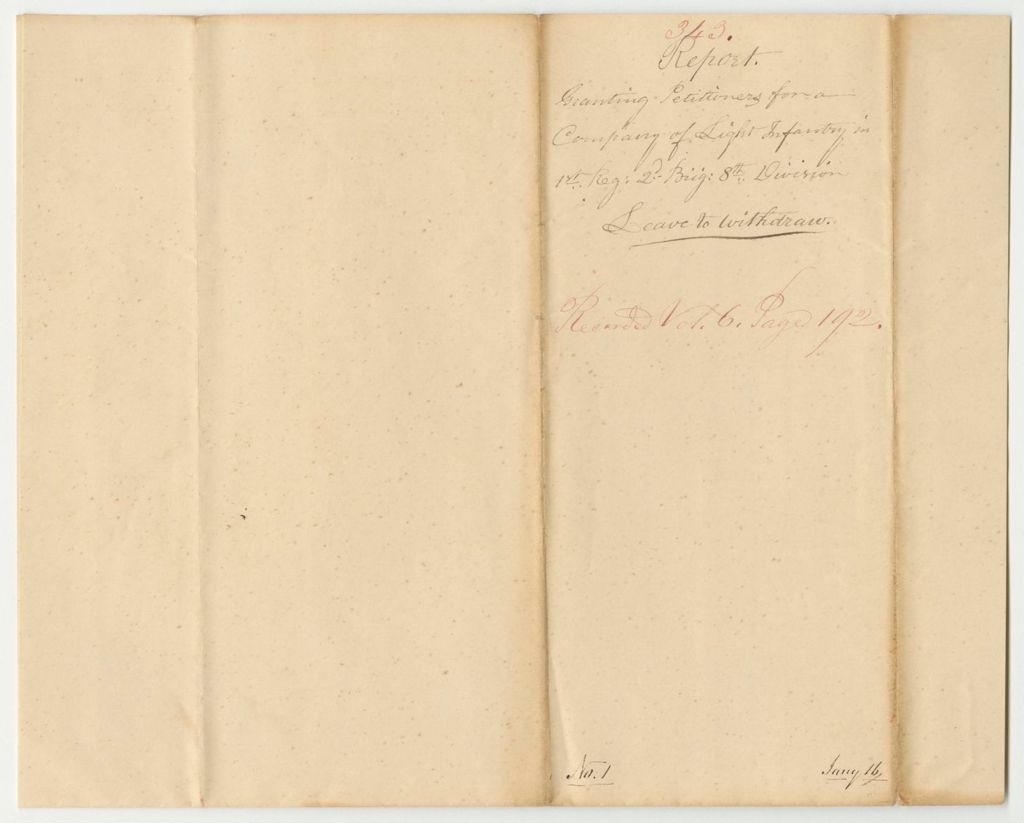 343.
Report.
Granting Petitioners for a
Company of Light Infantry in
1st. Reg: 2d. Brig: 8th. Division
Leave to withdraw.
Recorded Vol. 6. Page 192.
No. 1
Jany 16,